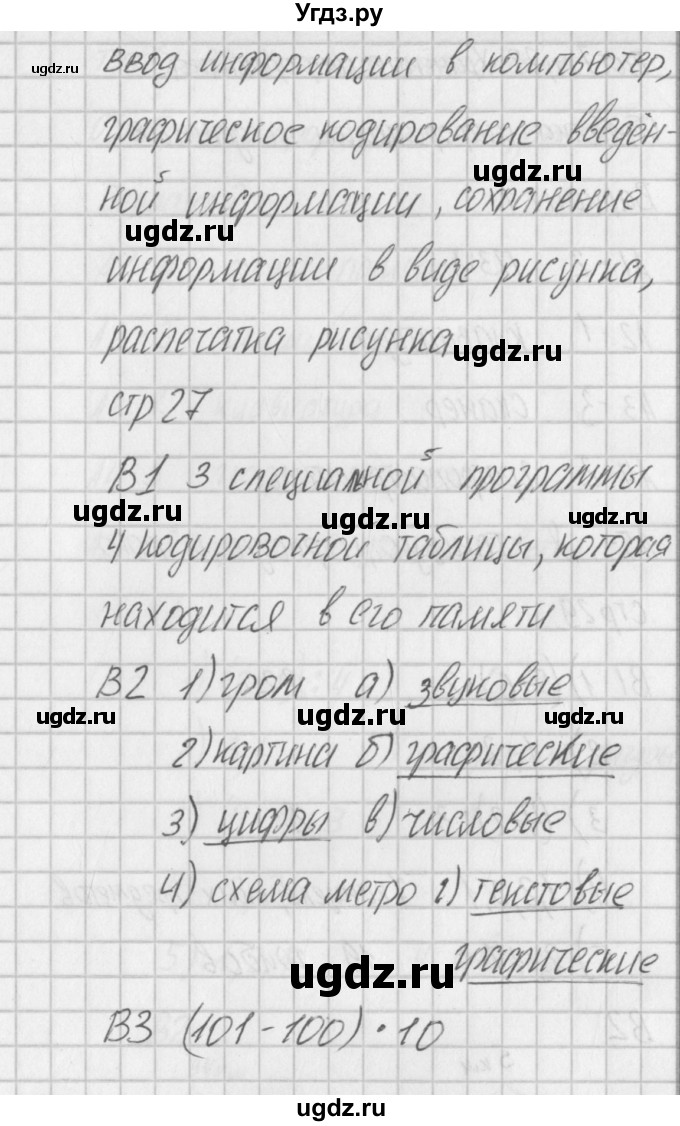 Угдз.ру
ввод информации в компьютер,
графическое кодирование введён-
ной информации, сохранение
информации в виде рисунка,
распечатка рисунка
стр 27
В1 3 специальной программы
4 кодировочной таблицы, которая
находится в его памяти
В2 1) гром а) звуковые
2) картина б) графические
3) цифры в) числовые
4) схема метро г) текстовые
графические
В3 (101-100)•10
ugdz.ru
ugdz.ru
ugdz.ru
ugdz.ru
ugdz.ru
ugdz.ru
ugdz.ru
ugdz.ru
ugdz.ru
ugdz.ru
ugdz.ru
ugdz.ru
ugdz.ru